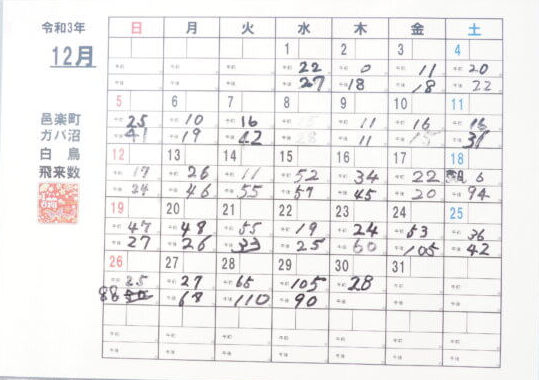 令和3年
12月
邑楽町
ガバ沼
白鳥
飛来数
日 月 火 水 木 金 土
1 2 3 4
午前 22 午前 0 午前 11 午前 20
午後 27 午後 18 午後 18 午後 22
5 6 7 8 9 10 11
午前 25 午前 10 午前 16 午前 午前 11 午前 16 午前 16
午後 41 午後 19 午後 42 午後 28 午後 11 午後 15 午後 31
12 13 14 15 16 17 18
午前 17 午前 26 午前 11 午前 52 午前 34 午前 22 6
午後 24 午後 46 午後 55 午後 57 午後 45 午後 20 午後 94
19 20 21 22 23 24 25
午前 47 午前 48 午前 55 午前 19 午前 24 午前 53 午前 36
午後 27 午後 26 午後 33 午後 25 午後 60 午後 105 午後 42
26 27 28 29 30 31
午前 25 午前 27 午前 65 午前 105 午前 28 午前
88 午後 68 午後 110 午後 90 午後 午後
午前 午前 午前 午前 午前 午前 午前
午後 午後 午後 午後 午後 午後 午後